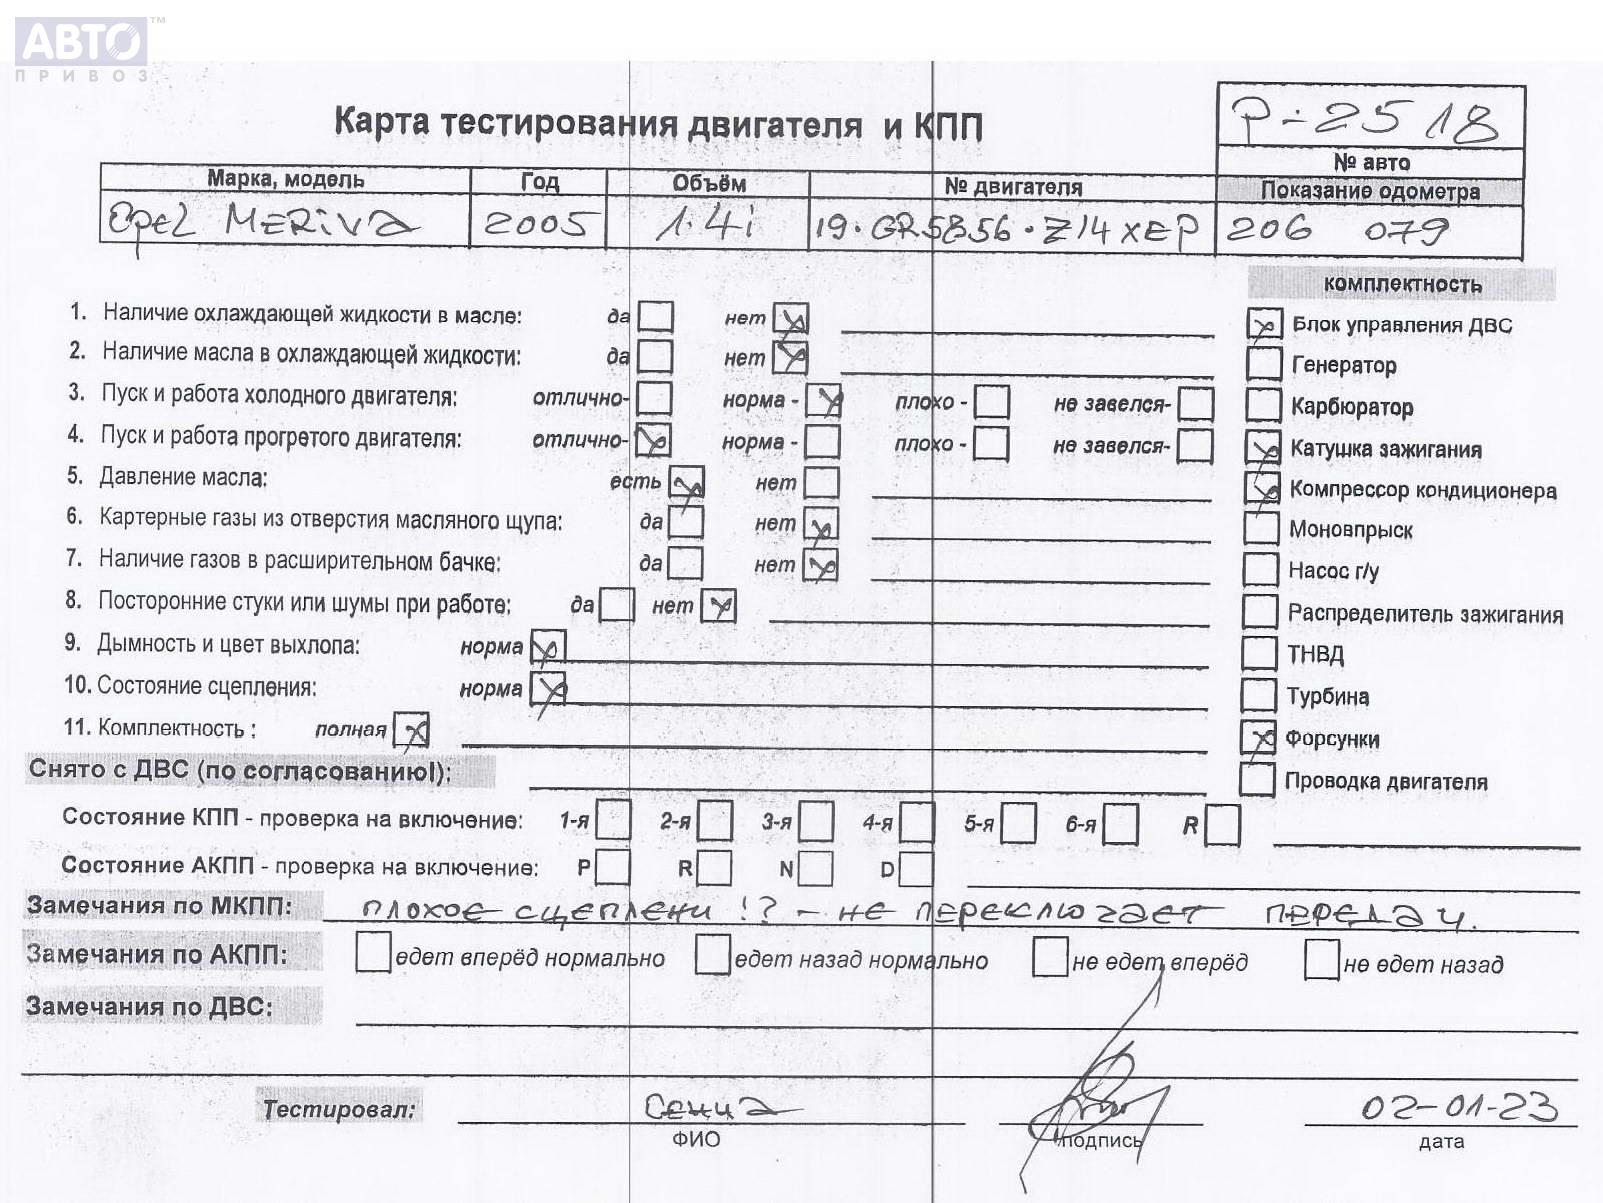 АВТО™
ПРИВОЗ
Карта тестирования двигателя и КПП
P-2518
№ авто
Марка, модель Год Объём № двигателя Показание одометра
Opel MERIVA 2005 1.4i 19·GR5856·Z14XEP 206 079
комплектность
1. Наличие охлаждающей жидкости в масле: да нет Блок управления ДВС
2. Наличие масла в охлаждающей жидкости: да нет Генератор
3. Пуск и работа холодного двигателя: отлично- норма - плохо - не завелся- Карбюратор
4. Пуск и работа прогретого двигателя: отлично- норма - плохо - не завелся- Катушка зажигания
5. Давление масла: есть нет Компрессор кондиционера
6. Картерные газы из отверстия масляного щупа: да нет Моновпрыск
7. Наличие газов в расширительном бачке: да нет Насос г/у
8. Посторонние стуки или шумы при работе: да нет Распределитель зажигания
9. Дымность и цвет выхлопа: норма ТНВД
10. Состояние сцепления: норма Турбина
11. Комплектность : полная Форсунки
Снято с ДВС (по согласованию!): Проводка двигателя
Состояние КПП - проверка на включение: 1-я 2-я 3-я 4-я 5-я 6-я R
Состояние АКПП - проверка на включение: P R N D
Замечания по МКПП: плохое сцеплени !? - не переключает передач.
Замечания по АКПП: едет вперёд нормально едет назад нормально не едет вперёд не едет назад
Замечания по ДВС:
Тестировал: 02-01-23
ФИО подпись дата